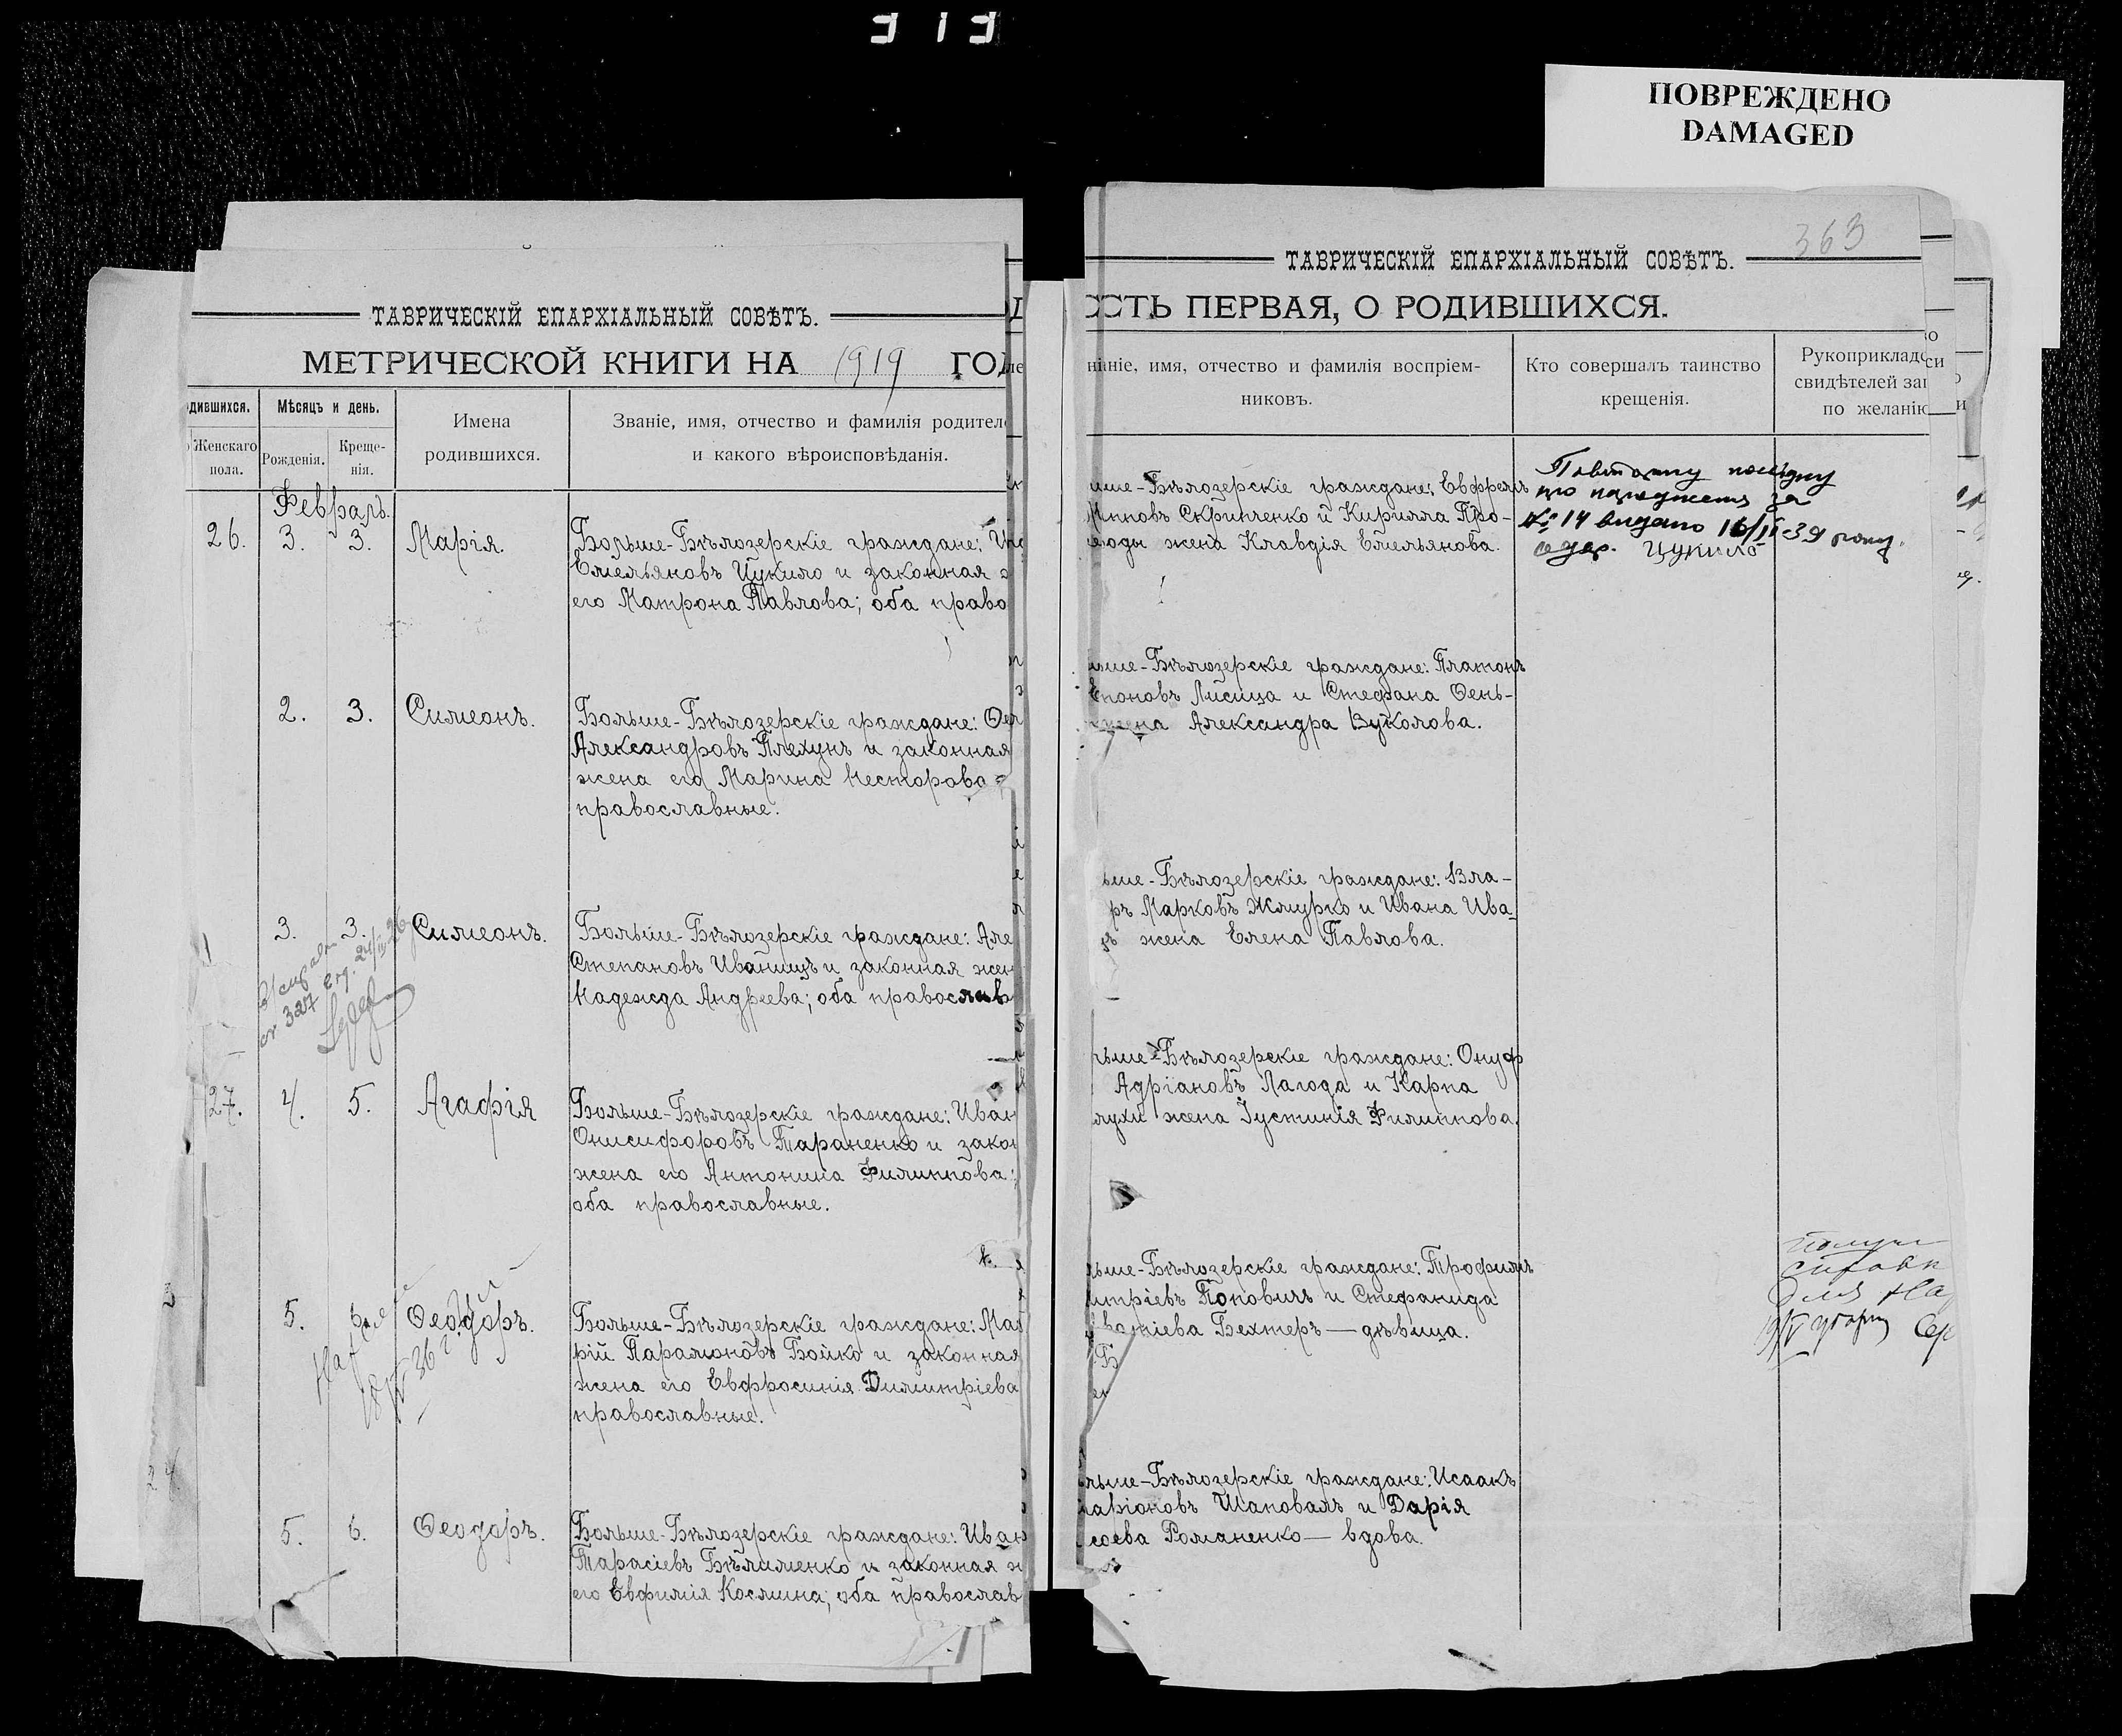 ПОВРЕЖДЕНО
DAMAGED
ТАВРИЧЕСКІЙ ЕПАРХІАЛЬНЫЙ СОВѢТЪ.
МЕТРИЧЕСКОЙ КНИГИ НА 1919 ГОД
дившихся.
Мѣсяцъ и день.
Женскаго пола.
Рожденія.
Креще-
нія.
Имена
родившихся.
Званіе, имя, отчество и фамилія родител
и какого вѣроисповѣданія.
Февраль.
26. 3. 3. Марія.
Больше-Бѣлозерскіе граждане:
Емельяновъ Цукило и законная
его Матрона Павлова; оба право
2. 3. Симеонъ.
Больше-Бѣлозерскіе граждане:
Александровъ Плехунъ и законная
жена его Марина Несторова
православные.
3. 3. Симеонъ.
Больше-Бѣлозерскіе граждане: Але
Степановъ Иваницъ и законная жен
Надежда Андреева; оба православ
27. 4. 5. Агафія
Больше-Бѣлозерскіе граждане: Иван
Онисифоровъ Тараненко и закон
жена его Антонина Филиппова;
оба православные.
5. 6. Ѳеодоръ.
Больше-Бѣлозерскіе граждане: Ма
рій Парамоновъ Бойко и законная
жена его Евфросинія Димитріева
православные.
5. 6. Ѳеодоръ.
Больше-Бѣлозерскіе граждане: Иван
Тарасіевъ Бѣлименко и законная ж
его Евфимія Космина; оба православ
363
ТАВРИЧЕСКІЙ ЕПАРХІАЛЬНЫЙ СОВѢТЪ.
СТЬ ПЕРВАЯ, О РОДИВШИХСЯ.
ніе, имя, отчество и фамилія воспріем-
никовъ.
Кто совершалъ таинство
крещенія.
Рукоприкладс
свидѣтелей зап
по желанію
ьше-Бѣлозерскіе граждане: Евфремъ
Скрипченко и Кирилла Про-
воды жена Клавдія Емельянова.
№ 14 видано 16/II-39 року.
Цукило
ьше-Бѣлозерскіе граждане: Платонъ
Лисица и Стефана Оень-
жена Александра Вуколова.
ьше-Бѣлозерскіе граждане: Вла-
ръ Марковъ Жмурко и Ивана Ива-
жена Елена Павлова.
льше-Бѣлозерскіе граждане: Онуф
Адріановъ Лагода и Карпа
лухи жена Іустинія Филиппова.
льше-Бѣлозерскіе граждане: Трофимъ
итріевъ Поповичъ и Стефанида
Бехтеръ — дѣвица.
льше-Бѣлозерскіе граждане: Исаакъ
ларіоновъ Шаповалъ и Дарія
сеева Романенко — вдова.